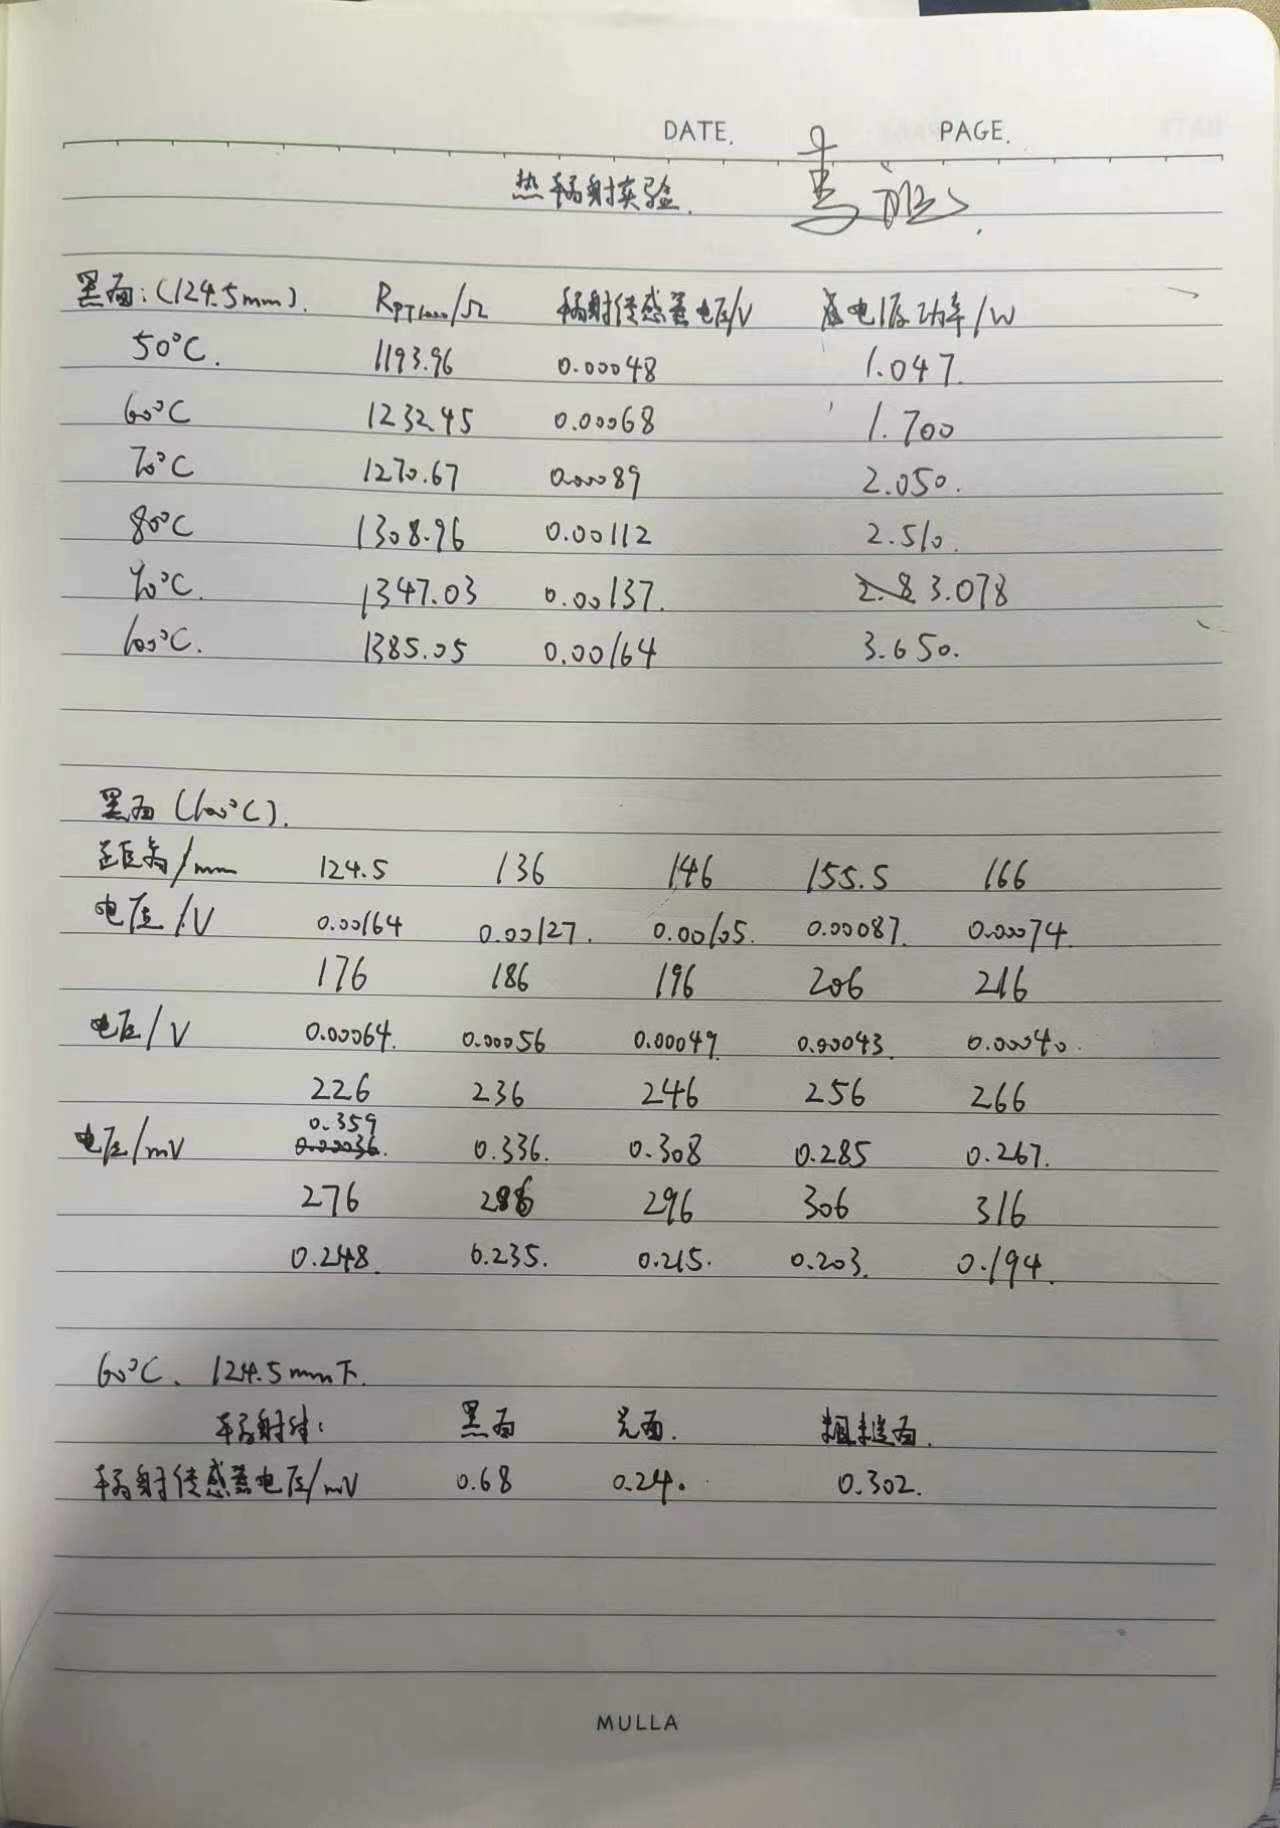 DATE. PAGE.
热辐射实验.
黑面:(124.5mm). R_PT1000/Ω 辐射传感器电压/V 电压功率/W
50°C. 1193.96 0.00048 1.047.
60°C 1232.45 0.00068 1.700
70°C 1270.67 0.00089 2.050.
80°C 1308.96 0.00112 2.510.
90°C. 1347.03 0.00137. 3.078
100°C. 1385.05 0.00164 3.650.
黑面(100°C).
距离/mm 124.5 136 146 155.5 166
电压/V 0.00164 0.00127. 0.00105. 0.00087. 0.00074.
176 186 196 206 216
电压/V 0.00064. 0.00056 0.00049. 0.00043. 0.00040.
226 236 246 256 266
0.359
电压/mV 0.00036. 0.336. 0.308 0.285 0.267.
276 286 296 306 316
0.248. 0.235. 0.215. 0.203. 0.194.
60°C、124.5mm下.
辐射体: 黑面 光面. 粗糙面.
辐射传感器电压/mV 0.68 0.24. 0.302.
MULLA